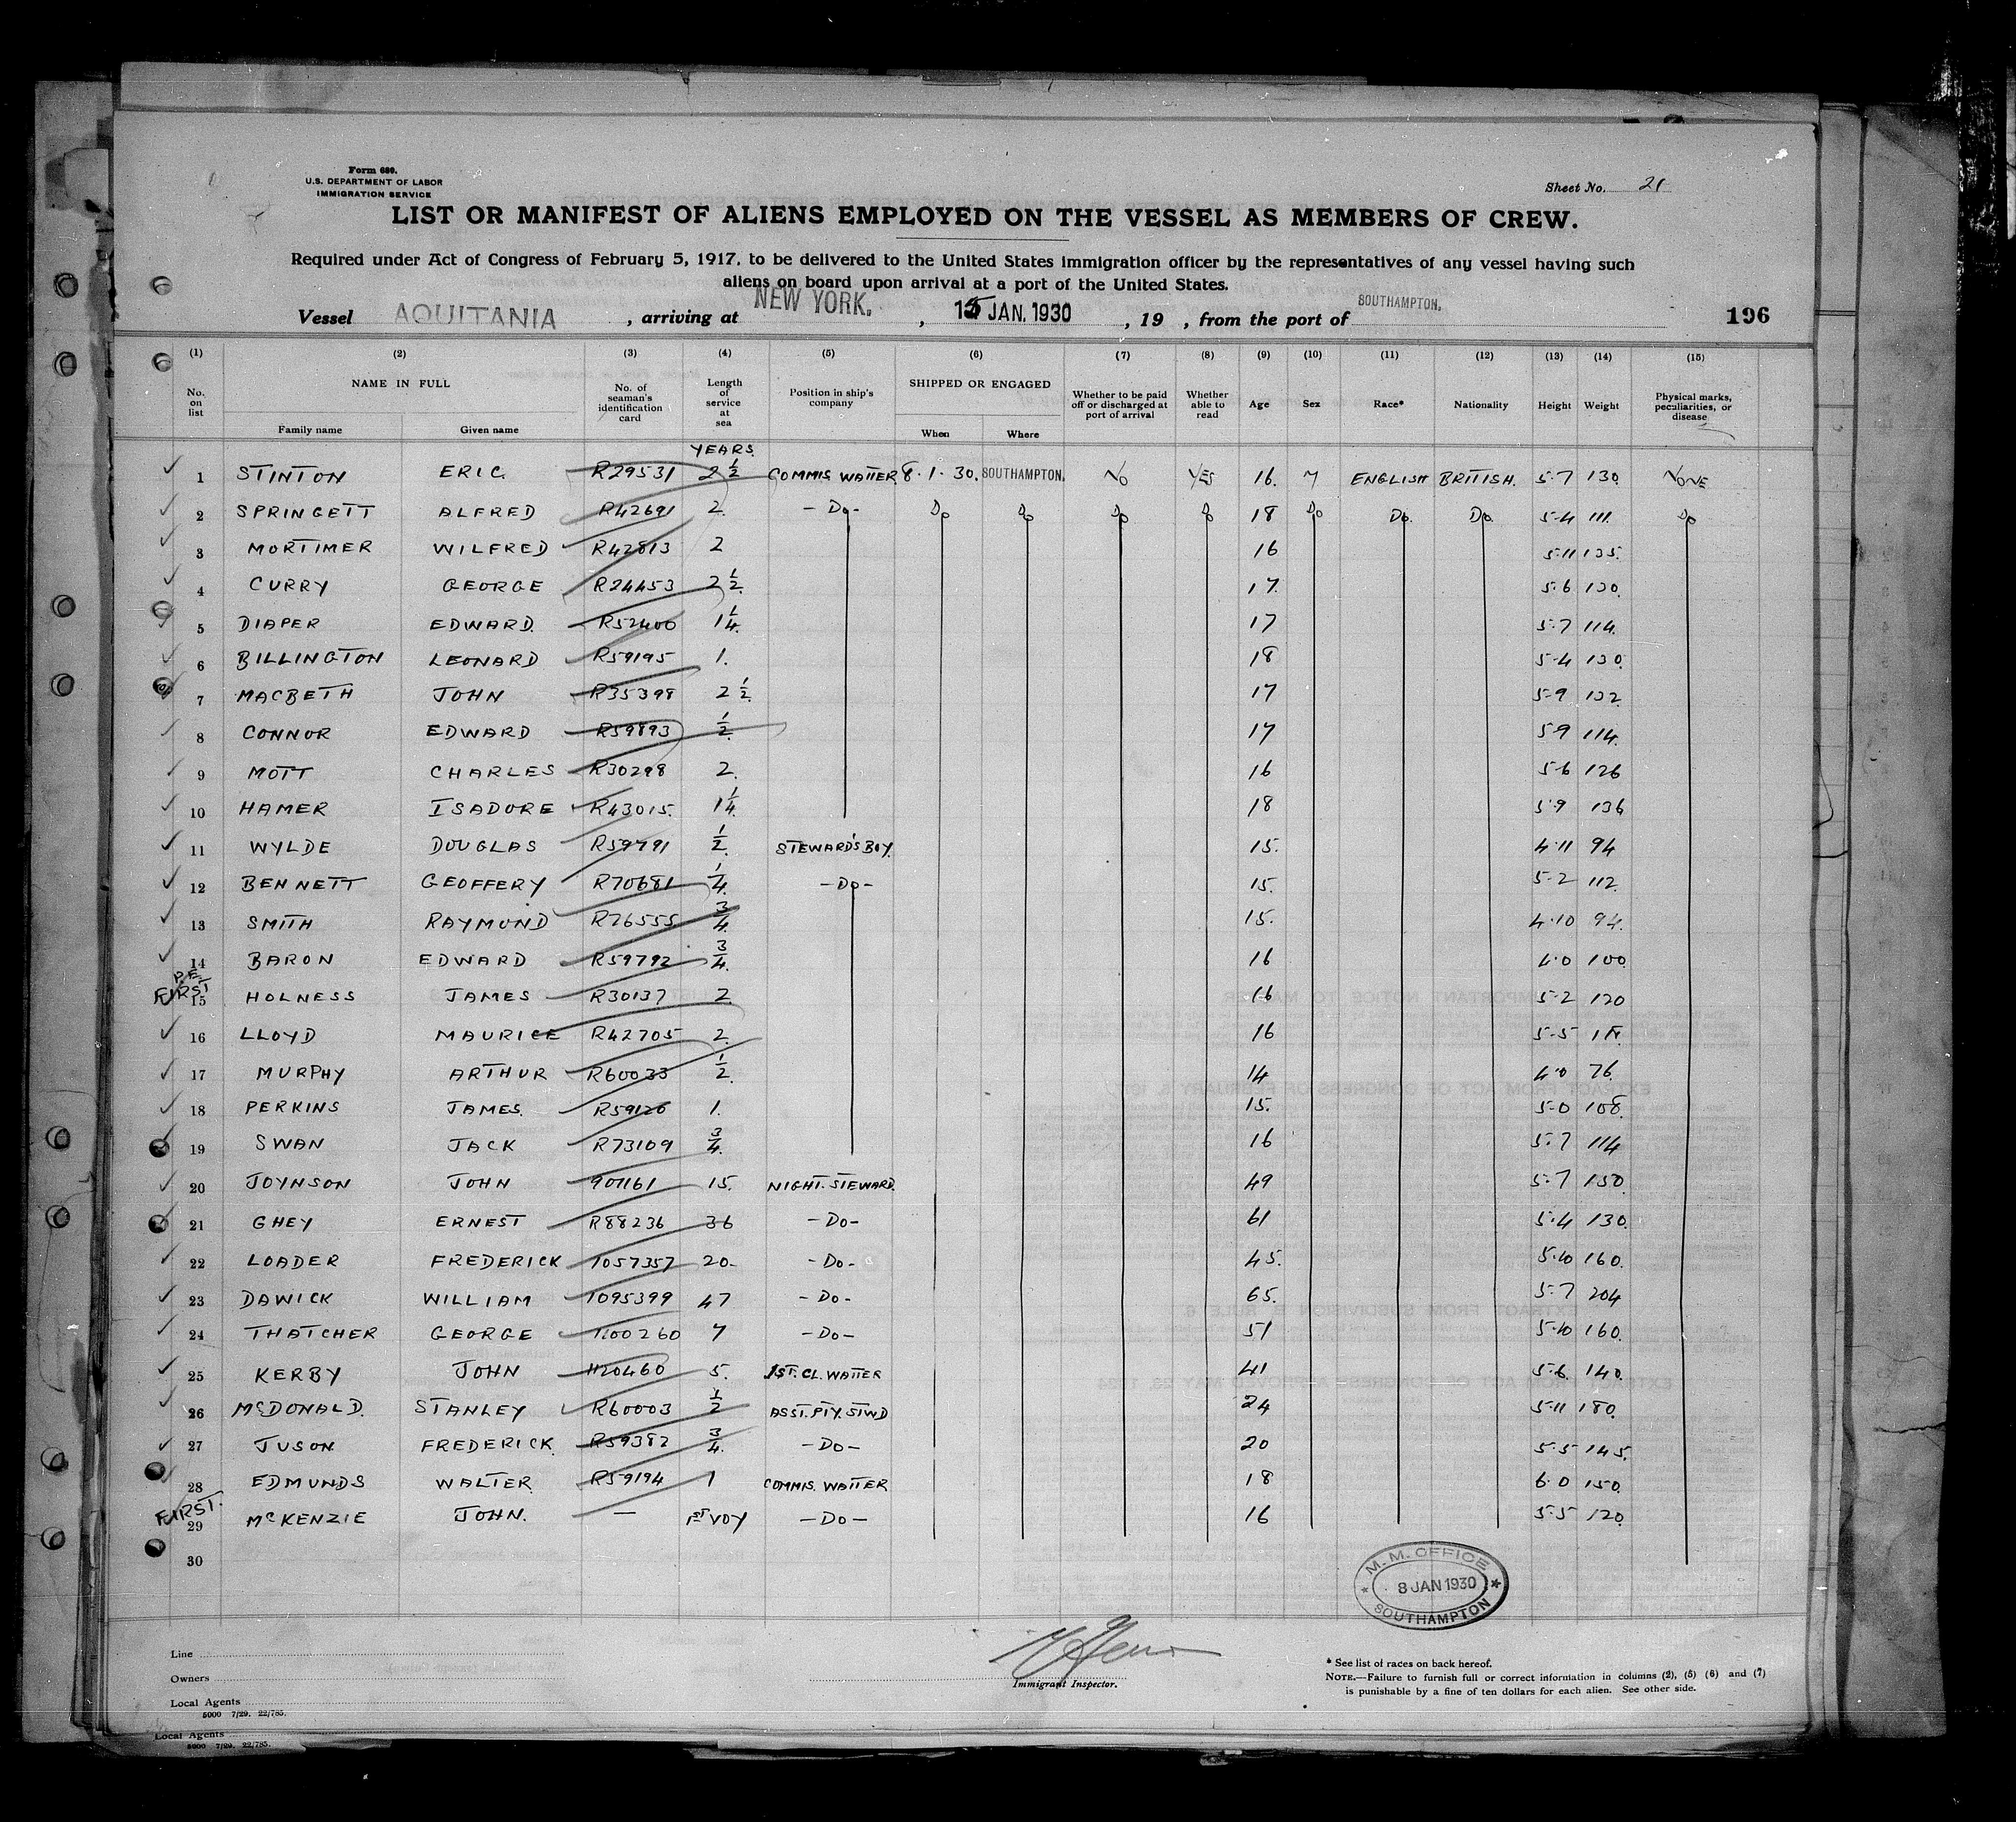 Form 680.
U.S. DEPARTMENT OF LABOR
IMMIGRATION SERVICE
Sheet No. 21
LIST OR MANIFEST OF ALIENS EMPLOYED ON THE VESSEL AS MEMBERS OF CREW.
Required under Act of Congress of February 5, 1917, to be delivered to the United States immigration officer by the representatives of any vessel having such
aliens on board upon arrival at a port of the United States.
Vessel AQUITANIA, arriving at NEW YORK., 15 JAN. 1930, 19 , from the port of SOUTHAMPTON. 196
(1) (2) (3) (4) (5) (6) (7) (8) (9) (10) (11) (12) (13) (14) (15)
No. on list NAME IN FULL Family name Given name No. of seaman's identification card Length of service at sea Position in ship's company SHIPPED OR ENGAGED When Where Whether to be paid off or discharged at port of arrival Whether able to read Age Sex Race* Nationality Height Weight Physical marks, peculiarities, or disease
YEARS.
1 STINTON ERIC R29531 2 1/2 COMMIS WAITER 8.1.30. SOUTHAMPTON. NO YES 16. M ENGLISH BRITISH. 5.7 130. NONE
2 SPRINGETT ALFRED R42691 2. -Do- Do Do Do Do 18 Do Do. Do. 5-4 111. Do
3 MORTIMER WILFRED R42813 2 16 5.11 135.
4 CURRY GEORGE R24453 2 1/2. 17. 5.6 130.
5 DIAPER EDWARD. R52400 1 1/4. 17 5.7 114.
6 BILLINGTON LEONARD R59195 1. 18 5-4 130.
7 MACBETH JOHN R35398 2 1/2. 17 5-9 132.
8 CONNOR EDWARD R59893 1/2. 17 5.9 114.
9 MOTT CHARLES R30298 2. 16 5.6 126
10 HAMER ISADORE R43015. 1 1/4. 18 5.9 136
11 WYLDE DOUGLAS R59791 1/2. STEWARD'S BOY. 15. 4.11 94
12 BENNETT GEOFFERY R70681 1/4. -Do- 15. 5-2 112.
13 SMITH RAYMOND R76555 3/4. 15. 4.10 94.
14 BARON EDWARD R59792 3/4. 16 4.0 100.
P.E. FIRST
15 HOLNESS JAMES R30137 2. 16 5-2 120
16 LLOYD MAURICE R42705 2. 16 5-5
17 MURPHY ARTHUR R60033 1/2. 14 4.0 76.
18 PERKINS JAMES. R59126 1. 15. 5-0 108.
19 SWAN JACK R73109 3/4. 16 5.7 114
20 JOYNSON JOHN 901161 15. NIGHT. STEWARD. 49 5-7 150.
21 GHEY ERNEST R88236 36 -Do- 61 5.4 130.
22 LOADER FREDERICK 1057357 20- -Do- 45. 5.10 160.
23 DAWICK WILLIAM 1095399 47 -Do- 65. 5-7 204
24 THATCHER GEORGE 1100260 7 -Do- 51 5.10 160.
25 KERBY JOHN 1120460 5. 1ST. CL. WAITER 41 5.6. 140.
26 McDONALD. STANLEY R60003 1/2 ASST. PTY. STWD 24 5.11 180.
27 JUSON FREDERICK. R59382 3/4. -Do- 20 5-5 145.
28 EDMUNDS WALTER. R59194 1 COMMIS. WAITER 18 6.0 150.
FIRST.
29 McKENZIE JOHN. — 1ST VOY -Do- 16 5-5 120.
30
M. M. OFFICE
8 JAN 1930
SOUTHAMPTON
Line
Owners
Local Agents
5000 7/29. 22/785.
Immigrant Inspector.
* See list of races on back hereof.
NOTE.—Failure to furnish full or correct information in columns (2), (5) (6) and (7)
is punishable by a fine of ten dollars for each alien. See other side.
Local Agents
5000 7/29. 22/785.